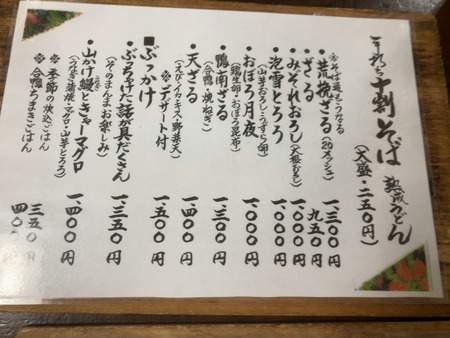 すれっち十割そば 熟成うどん
(大盛・二五〇円)
※そば通もうなる
・荒挽ざる(20メッシュ) 一、三〇〇円
・ざる 九五〇円
・みぞれおろし(大根おろし) 一、〇〇〇円
・泡雪とろろ 一、〇〇〇円
(山芋おろし・うずら卵)
・おぼろ月夜 一、〇〇〇円
(鶏生卵・おぼろ昆布)
・鴨南ざる 一、三〇〇円
(合鴨・焼ねぎ)
・天ざる 一、四〇〇円
(えび・イカ・キス・野菜天)
※デザート付 一、五〇〇円
■ぶっかけ
・ぶっちゃけた話が具だくさん 一、三五〇円
(そのまんまお楽しみ)
・山かけ鰻ときゃーマグロ 一、四〇〇円
(うなぎ蒲焼・マグロ・山芋とろろ)
※季節の炊込ごはん 三五〇円
※合鴨ちまきごはん 四〇〇円